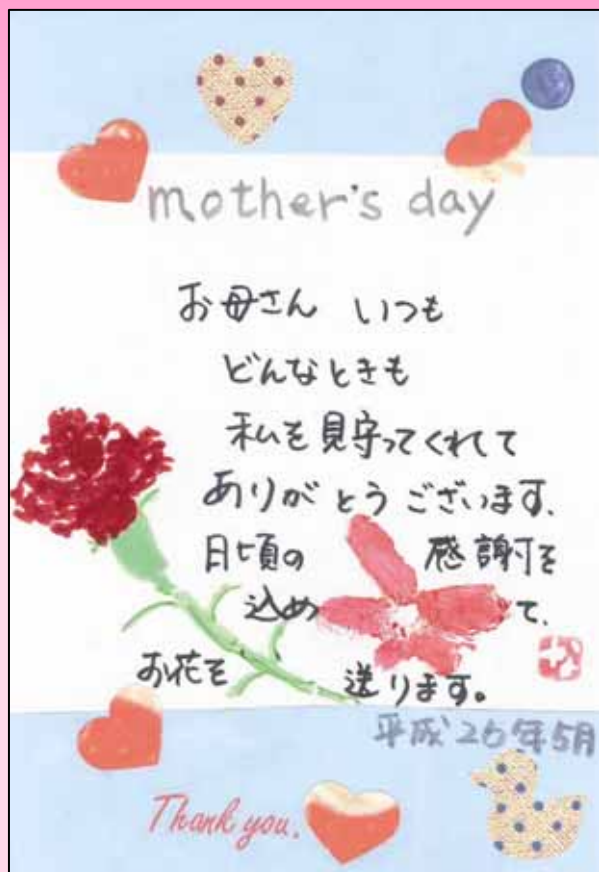 mother's day
お母さん いつも
どんなときも
私を見守ってくれて
ありがとうございます。
日頃の 感謝を
込め て、
お花を 送ります。
平成26年5月
Thank you.